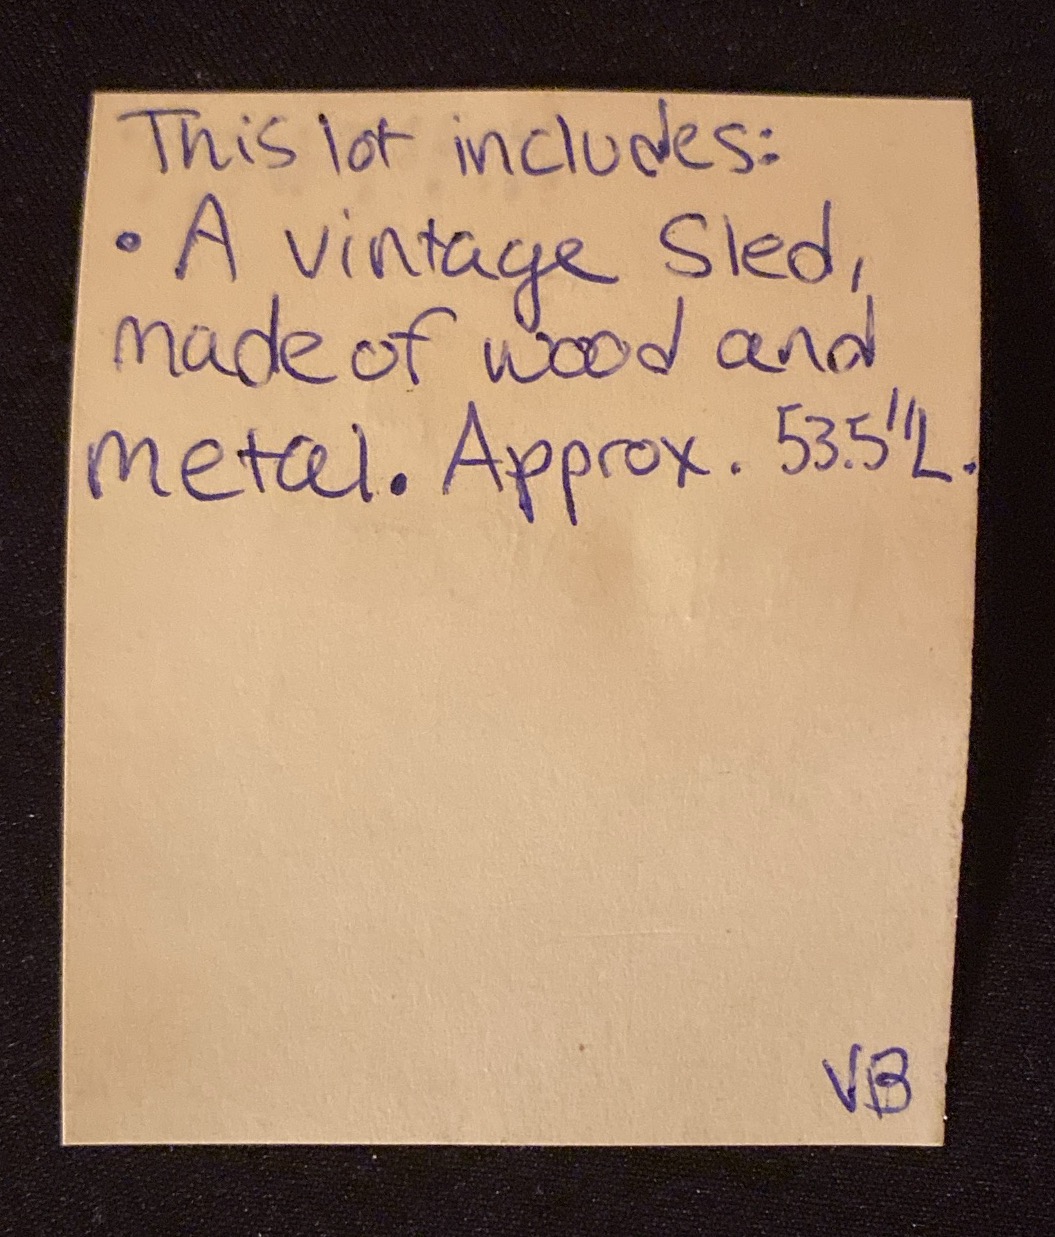 This lot includes:
• A vintage Sled,
made of wood and
metal. Approx. 53.5"L.
VB